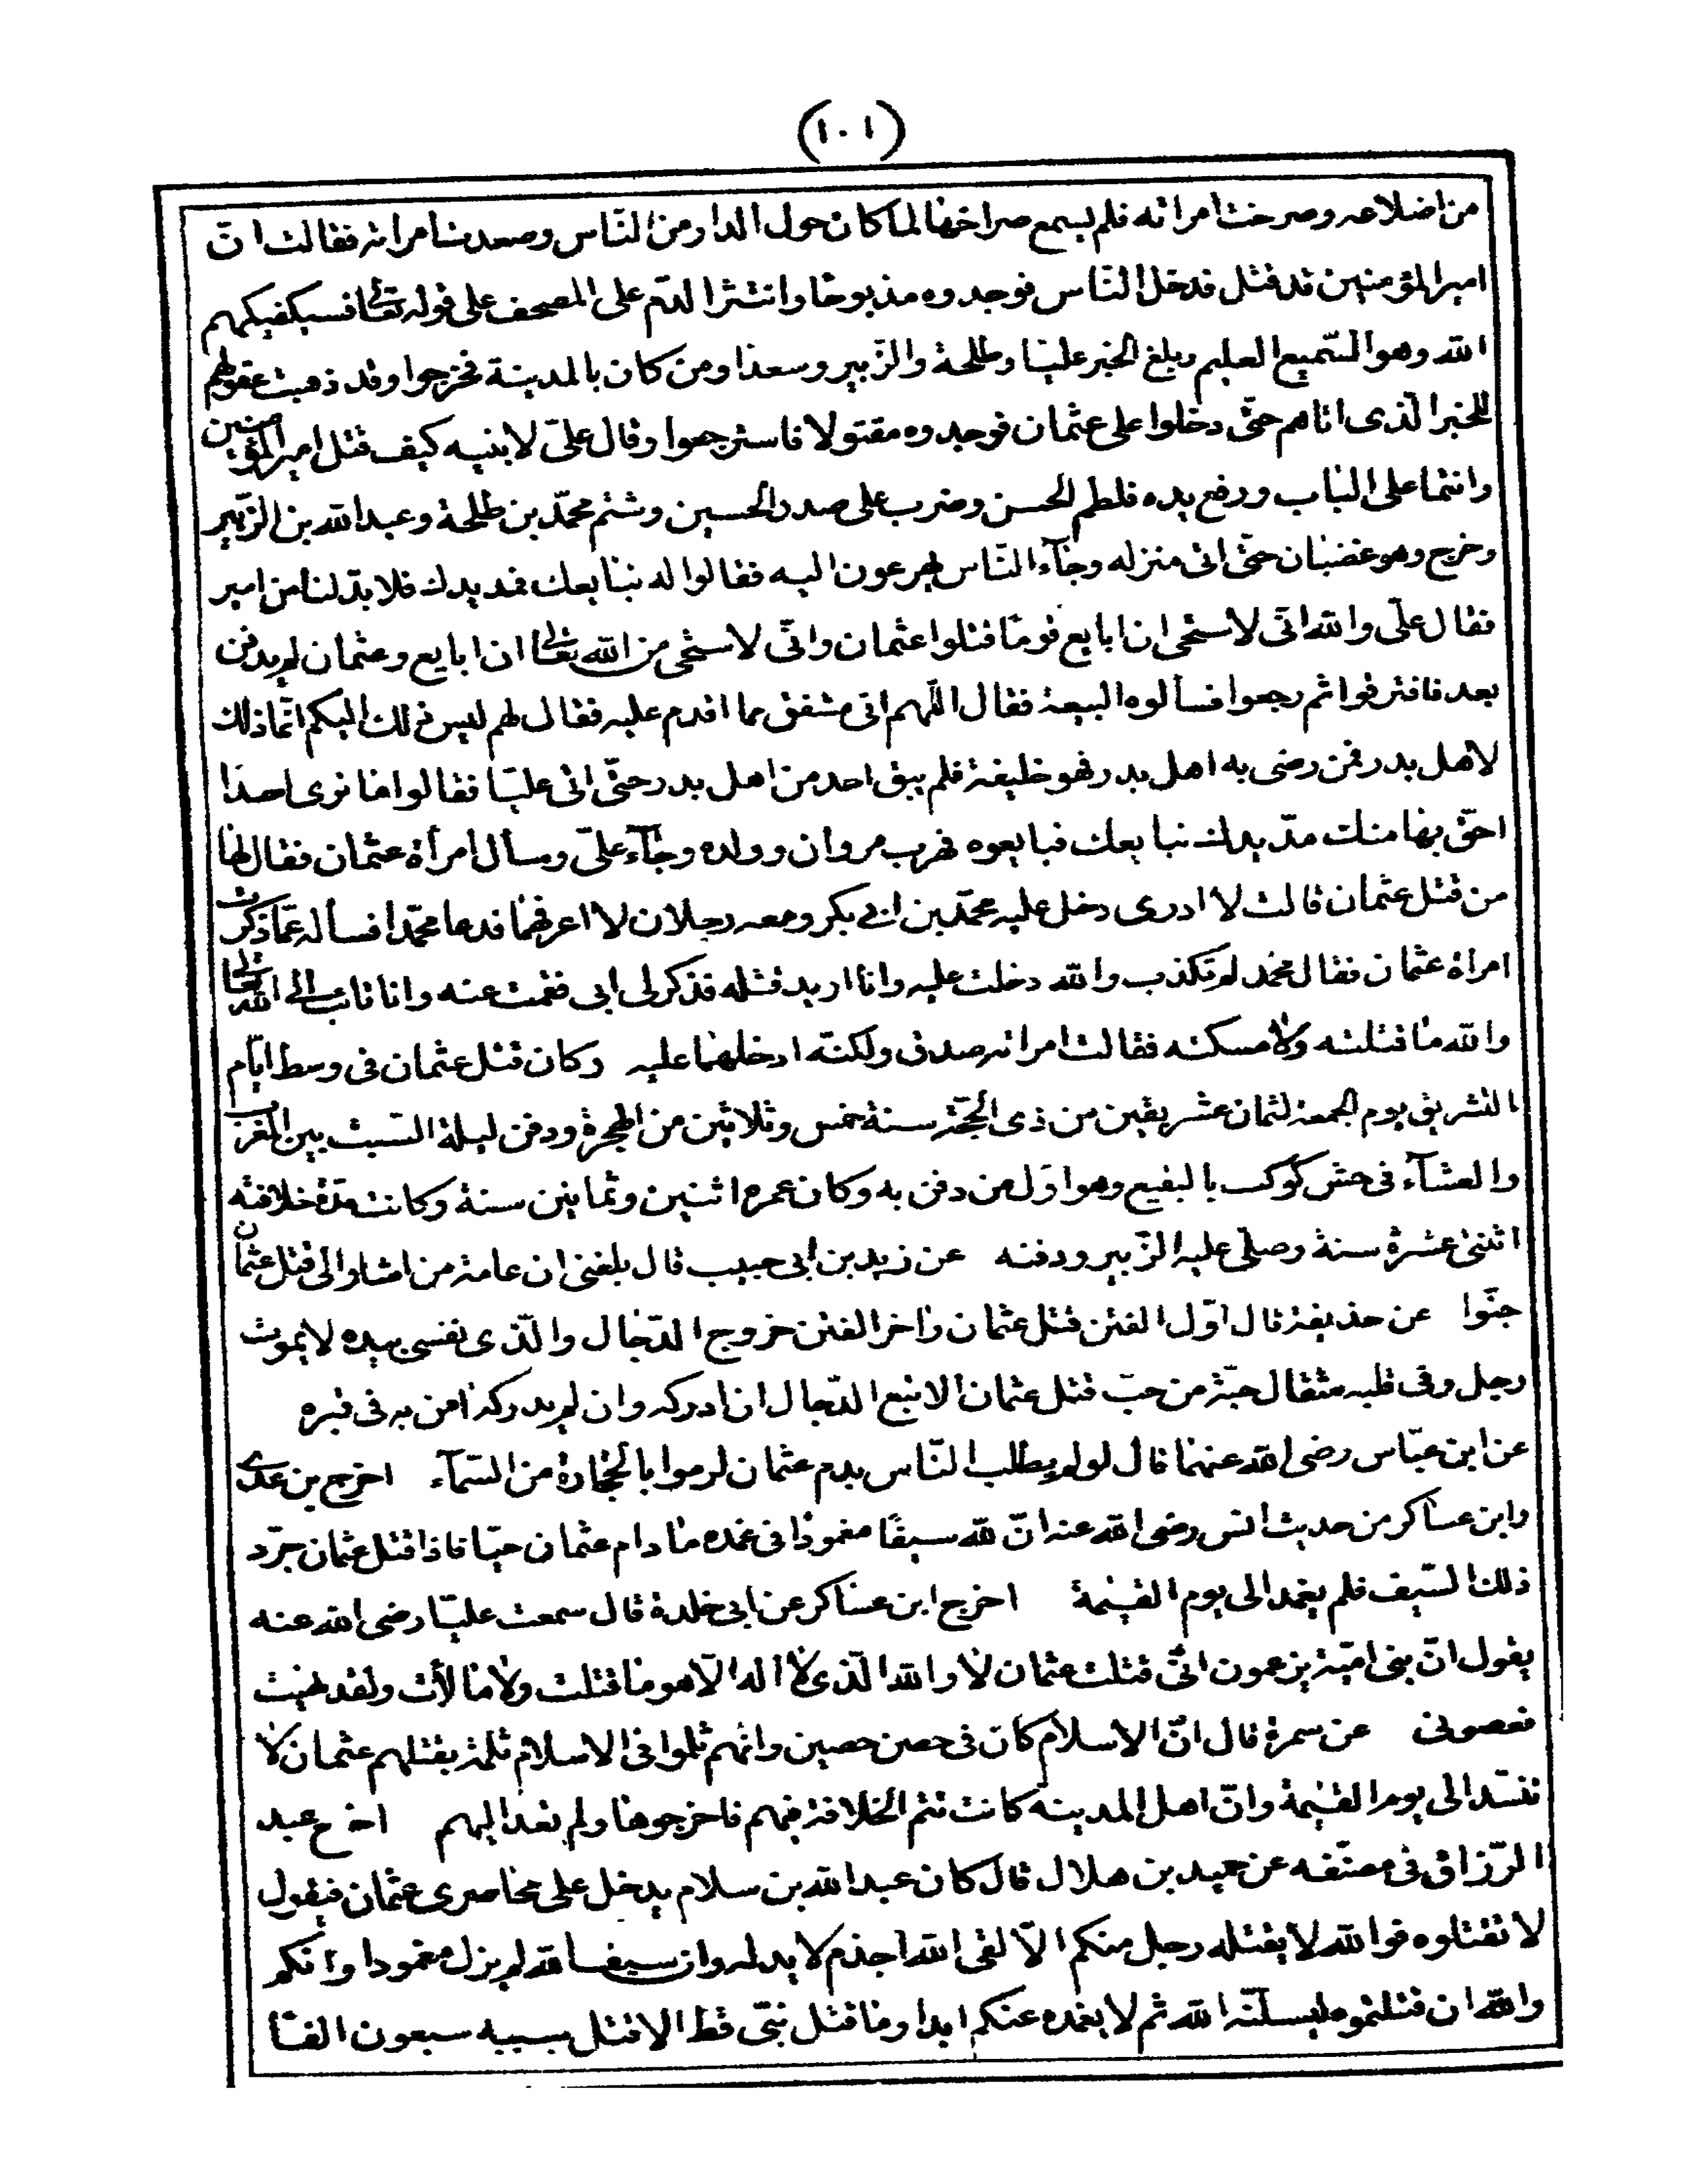 (١٠١)
من اضلاعه وصرخت امراته فلم يسمع صراخها لما كان حول الدار من النّاس وصعدت امراته فقالت انّ
امير المؤمنين قد قتل فدخل النّاس فوجدوه مذبوحا وانتثر الدّم على المصحف على قوله تعالى فسيكفيكهم
الله وهو السّميع العليم وبلغ الخبر عليّا وطلحة والزّبير وسعدا ومن كان بالمدينة فخرجوا وقد ذهبت عقولهم
للخبر الّذى اتاهم حتّى دخلوا على عثمان فوجدوه مقتولا فاسترجعوا وقال علىّ لابنيه كيف قتل امير المؤمنين
وانتما على الباب ورفع يده فلطم الحسن وضرب على صدر الحسين وشتم محمّد بن طلحة وعبد الله بن الزّبير
وخرج وهو غضبان حتّى اتى منزله وجآء النّاس يهرعون اليه فقالوا له نبايعك فمد يدك فلا بدّ لنا من امير
فقال علىّ والله انّى لاستحى ان ابايع قوما قتلوا عثمان وانّى لاستحى من الله تعالى ان ابايع وعثمان لم يدفن
بعد فافترقوا ثم رجعوا فسألوه البيعة فقال اللّهم انّى مشفق مما اقدم عليه فقال لهم ليس ذلك اليكم انّما ذلك
لاهل بدر فمن رضى به اهل بدر فهو خليفة فلم يبق احد من اهل بدر حتّى اتى عليّا فقالوا ما نرى احدا
احقّ بها منك مدّ يدك نبايعك فبايعوه فهرب مروان وولده وجآء علىّ وسأل امرأة عثمان فقال لها
من قتل عثمان قالت لا ادرى دخل عليه محمّد بن ابى بكر ومعه رجلان لا اعرفهما فدعا محمّدا فسأله عمّا ذكرت
امراة عثمان فقال محمد لم تكذب والله دخلت عليه وانا اريد قتله فذكر لى ابى فقمت عنه وانا تائب الى الله تعالى
والله ما قتلته ولا مسكته فقالت امراته صدق ولكنّه ادخلهما عليه وكان قتل عثمان فى وسط ايّام
التشريق يوم الجمعة لثمان عشر بقين من ذى الحجّة سنة خمس وثلاثين من الهجرة ودفن ليلة السّبت بين المغرب
والعشآء فى حش كوكب بالبقيع وهو اوّل من دفن به وكان عمره اثنين وثمانين سنة وكانت مدّة خلافته
اثنتى عشرة سنة وصلّى عليه الزّبير ودفنه عن زيد بن ابى حبيب قال بلغنى ان عامة من اشار الى قتل عثمان
جنّوا عن حذيفة قال اوّل الفتن قتل عثمان واخر الفتن خروج الدّجال والّذى نفسى بيده لا يموت
رجل وفى قلبه مثقال حبّة من حبّ قتل عثمان الا تبع الدّجال ان ادركه وان لم يدركه امن به فى قبره
عن ابن عبّاس رضى الله عنهما قال لو لم يطلب النّاس بدم عثمان لرموا بالحجارة من السّمآء اخرج بن عدى
وابن عساكر من حديث انس رضى الله عنه انّ لله سيفًا مغمودا فى غمده ما دام عثمان حيّا فاذا قتل عثمان جرّد
ذلك السّيف فلم يغمد الى يوم القيٰمة اخرج ابن عساكر عن ابى خلدة قال سمعت عليّا رضى الله عنه
يقول انّ بنى اميّة يزعمون انّى قتلت عثمان لا والله الّذى لا اله الّا هو ما قتلت ولا مالأت ولقد نهيت
فعصونى عن سمرة قال انّ الاسلام كان فى حصن حصين وانهم ثلموا فى الاسلام ثلمة بقتلهم عثمان لا
تنسدّ الى يوم القيٰمة وانّ اهل المدينة كانت الخلافة فيهم فاخرجوها ولم تعد اليهم اخرج عبد
الرّزاق فى مصنّفه عن حميد بن هلال قال كان عبد الله بن سلام يدخل على محاصرى عثمان فيقول
لا تقتلوه فوالله لا يقتله رجل منكم الّا لقى الله اجذم لا يد له وان سيف الله لم يزل مغمودا وانكم
والله ان قتلتموه ليسلّنّه الله ثم لا يغمده عنكم ابدا وما قتل نبّى قط الا قتل بسببه سبعون الفا